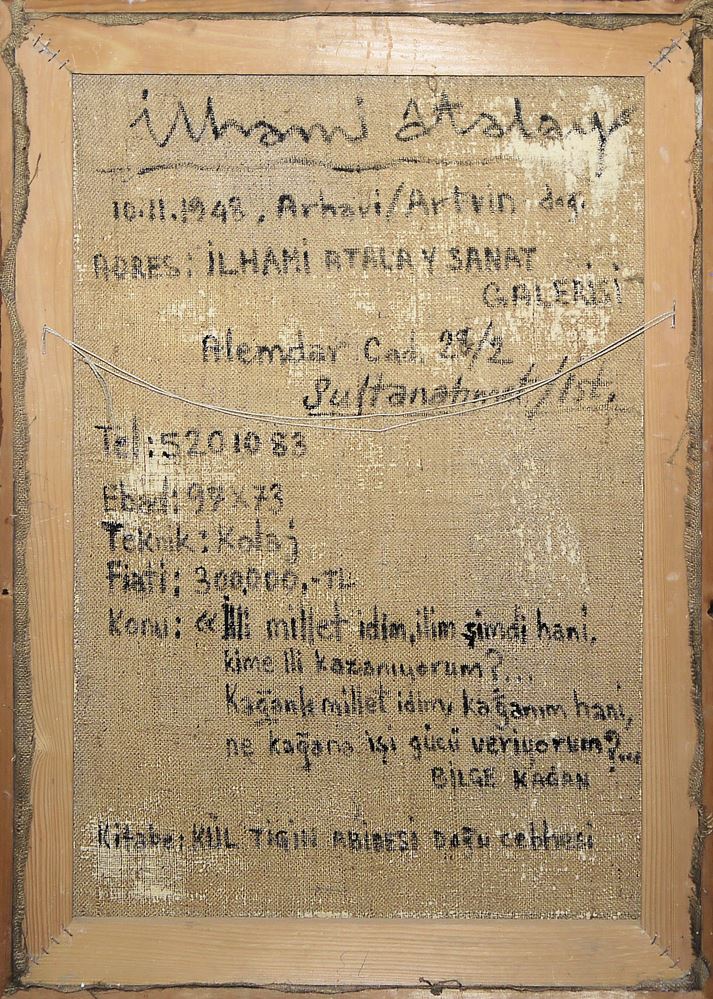 ilhami Atalay
10.11.1948, Arhavi/Artvin doğ.
ADRES: İLHAMİ ATALAY SANAT
GALERİSİ
Alemdar Cad. 28/2
Sultanahmet/İst.
Tel: 520 10 83
Ebad: 98x73
Teknik: Kolaj
Fiati: 300,000,-TL
Konu: «İlli millet idim, ilim şimdi hani,
kime ili kazanıyorum?...
Kağanlı millet idim, kağanım hani,
ne kağana işi gücü veriyorum?...
BİLGE KAĞAN
Kitabe: KÜL TİGİN ABİDESİ Doğu cebhesi